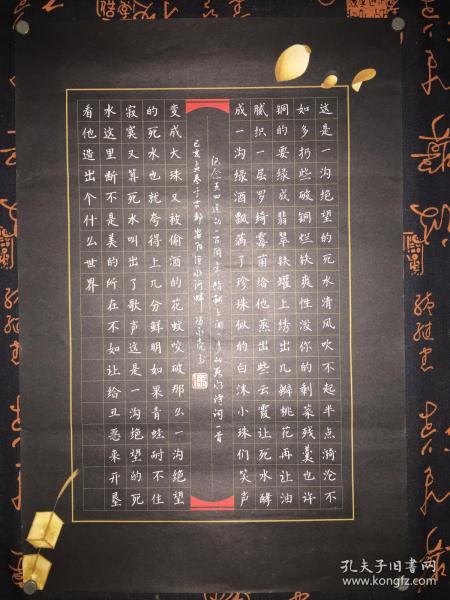 这是一沟绝望的死水清风吹不起半点漪沦不
如多扔些破铜烂铁爽性泼你的剩菜残羹也许
铜的要绿成翡翠铁罐上绣出几瓣桃花再让油
腻织一层罗绮霉菌给他蒸出些云霞让死水酵
成一沟绿酒飘满了珍珠似的白沫小珠们笑声
纪念五四运动一百周年特录闻一多的死水诗词一首
己亥孟春于古都安阳洹水河畔
变成大珠又被偷酒的花蚊咬破那么一沟绝望
的死水也就夸得上几分鲜明如果青蛙耐不住
寂寞又算死水叫出了歌声这是一沟绝望的死
水这里断不是美的所在不如让给丑恶来开垦
看他造出个什么世界
孔夫子旧书网
www.kongfz.com